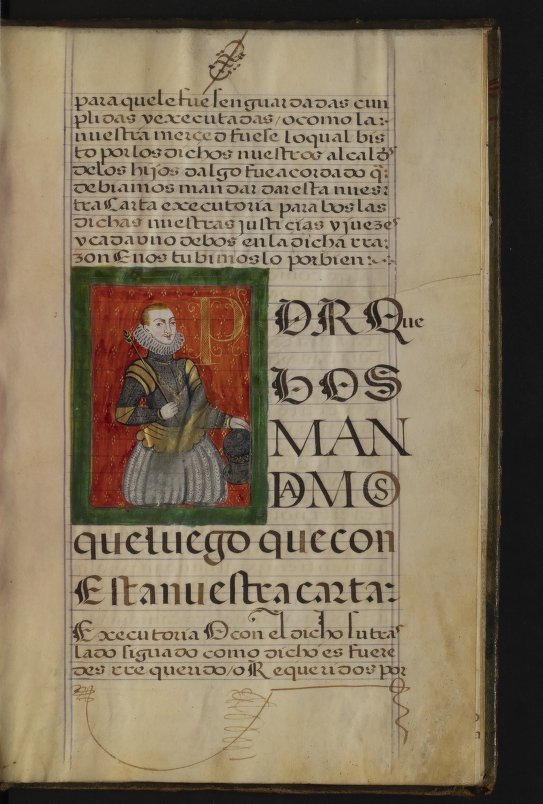 para que le fuesen guardadas cun
plidas y executadas / o como la:
nuestra merced fuese lo qual bis
to por los dichos nuestros alcaldes
delos hijos dalgo fue acordado q̃:
debiamos mandar dar esta nues:
tra Carta executoria para bos las
dichas nuestras justicias y juezes
y cada uno de bos en la dicha rra:
zon E nos tubimos lo por bien:
P
POR Que
bOS
MAN
DAMOS
que luego que con
Esta nuestra carta:
Executoria O con el dicho su tras
lado signado como dicho es fuere
des rrequerido / o Requeridos por